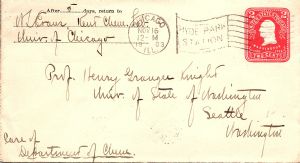 After 5 days, return to
Kent Chem. Lab.
Univ. of Chicago
CHICAGO
NOV 16
1903
ILL.
HYDE PARK
STATION
Prof. Henry Grange Knight
Univ. of State of Washington
Seattle
Washington
Care of
Department of Chem.